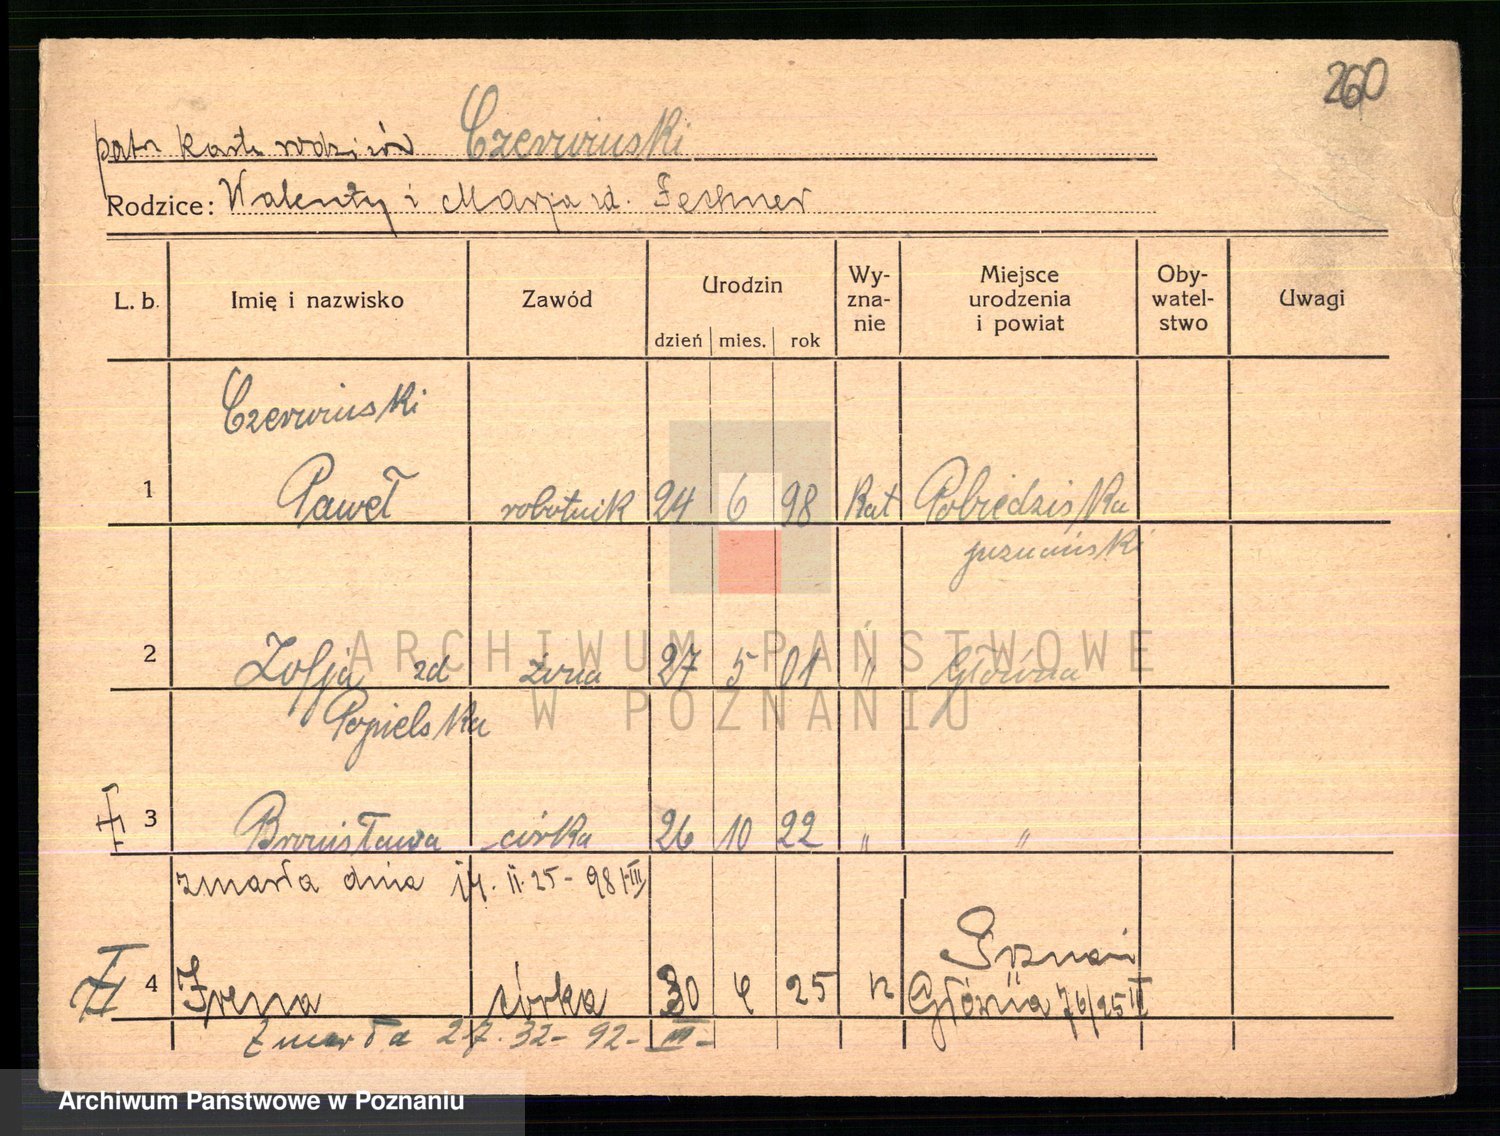 260
patrz kartę rodziców Czerwiński
Rodzice: Walenty i Marja zd. Fechner
L. b. Imię i nazwisko Zawód Urodzin dzień mies. rok Wy-zna-nie Miejsce urodzenia i powiat Oby-watel-stwo Uwagi
Czerwiński
1 Paweł robotnik 24 6 98 kat Pobiedziska
poznański
2 Zofja zd żona 27 5 01 " Główna
Popielska
3 Bronisława córka 26 10 22 " "
zmarła dnia 14. II. 25 - 98/III
Poznań
4 Irena córka 30 4 25 " Główna 76/25 III
zmarła 2.7.32 - 92 - III -
ARCHIWUM PAŃSTWOWE
W POZNANIU
Archiwum Państwowe w Poznaniu